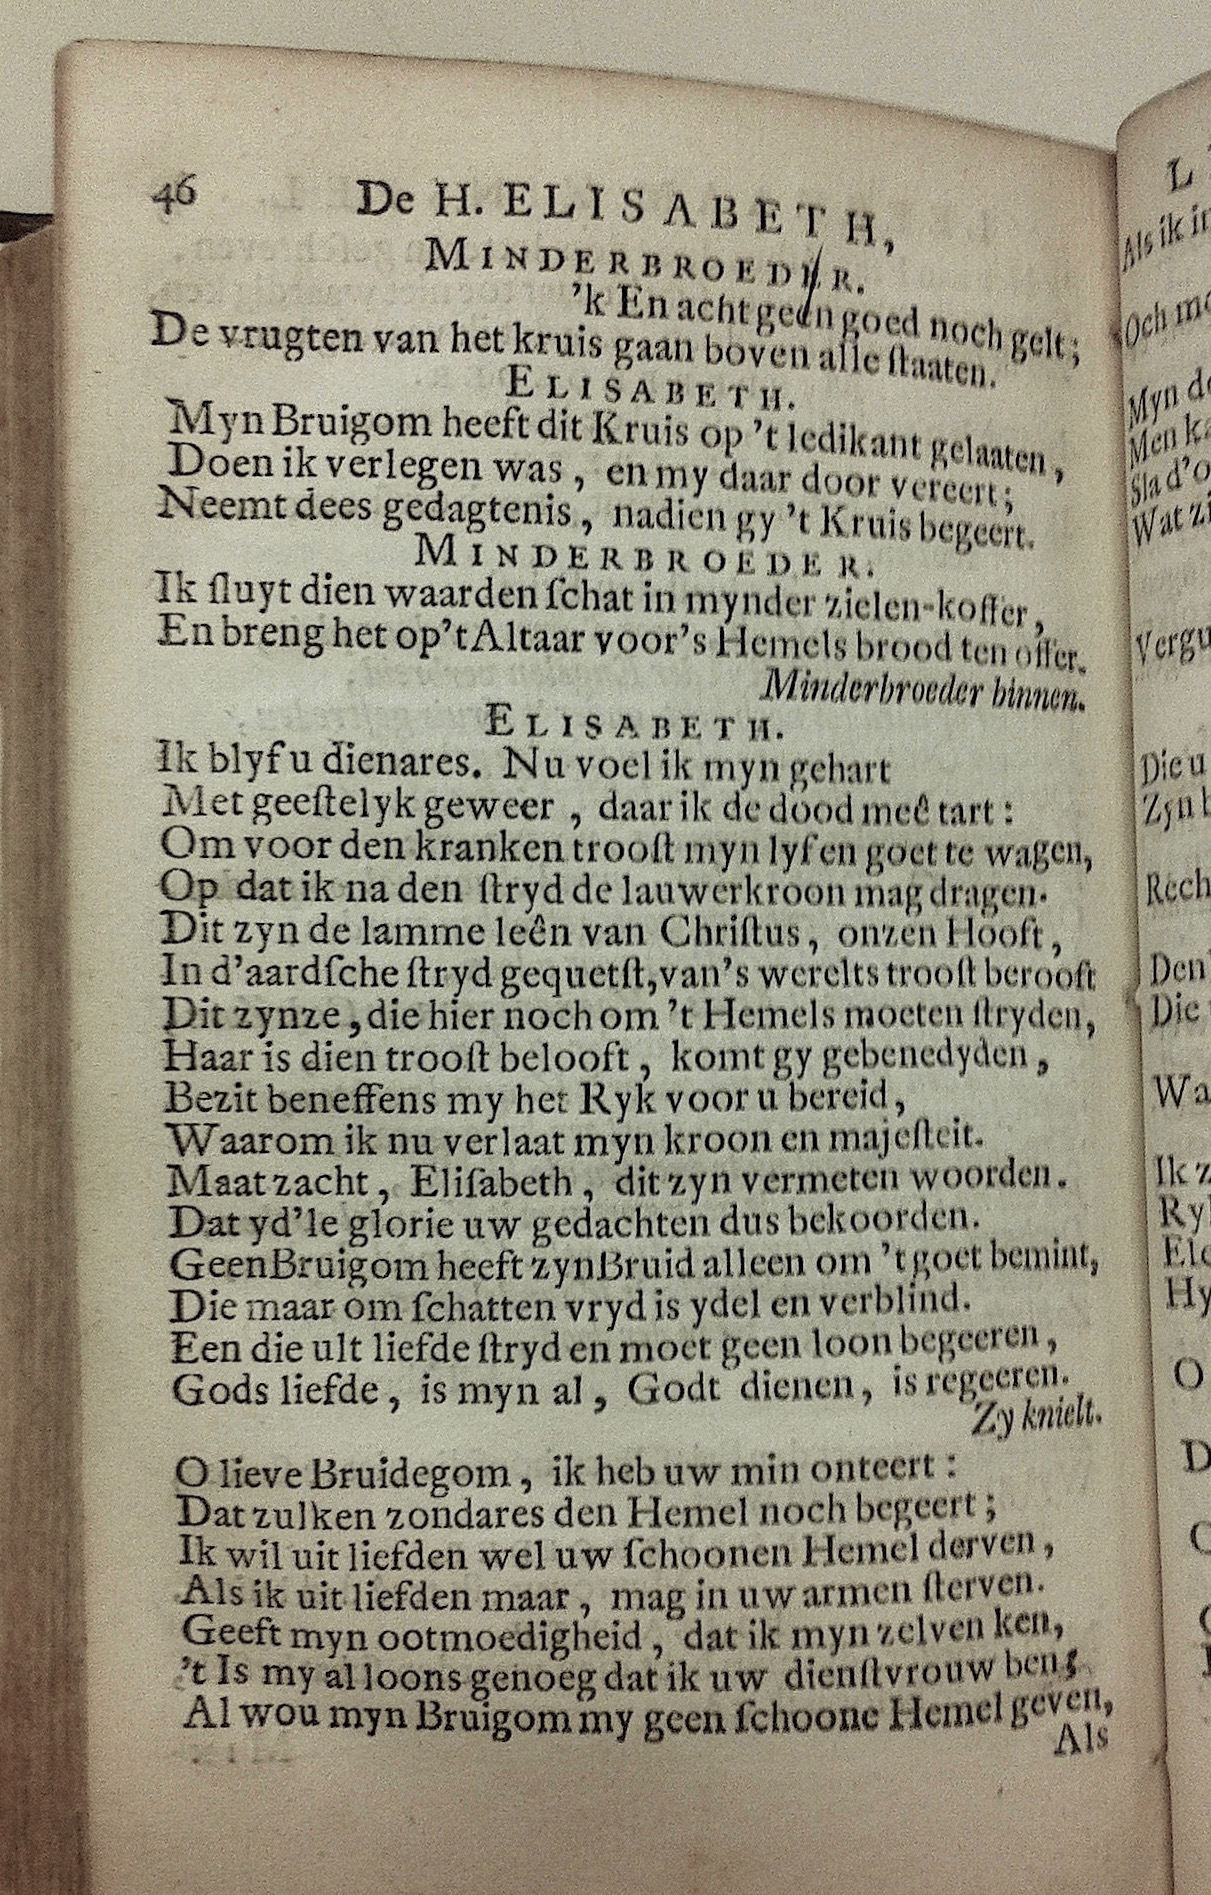 46 De H. ELISABETH,
MINDERBROEDER.
'k En acht geen goed noch gelt;
De vrugten van het kruis gaan boven alle ſtaaten.
ELISABETH.
Myn Bruigom heeft dit Kruis op 't ledikant gelaaten,
Doen ik verlegen was, en my daar door vereert;
Neemt dees gedagtenis, nadien gy 't Kruis begeert.
MINDERBROEDER.
Ik ſluyt dien waarden ſchat in mynder zielen-koffer,
En breng het op't Altaar voor's Hemels brood ten offer.
Minderbroeder binnen.
ELISABETH.
Ik blyf u dienares. Nu voel ik myn gehart
Met geeſtelyk geweer, daar ik de dood meê tart:
Om voor den kranken trooſt myn lyf en goet te wagen,
Op dat ik na den ſtryd de lauwerkroon mag dragen.
Dit zyn de lamme leên van Chriſtus, onzen Hooft,
In d'aardſche ſtryd gequetſt, van's werelts trooſt berooft
Dit zynze, die hier noch om 't Hemels moeten ſtryden,
Haar is dien trooſt belooft, komt gy gebenedyden,
Bezit beneffens my het Ryk voor u bereid,
Waarom ik nu verlaat myn kroon en majeſteit.
Maat zacht, Eliſabeth, dit zyn vermeten woorden.
Dat yd'le glorie uw gedachten dus bekoorden.
Geen Bruigom heeft zyn Bruid alleen om 't goet bemint,
Die maar om ſchatten vryd is ydel en verblind.
Een die ult liefde ſtryd en moet geen loon begeeren,
Gods liefde, is myn al, Godt dienen, is regeeren.
Zy knielt.
O lieve Bruidegom, ik heb uw min onteert:
Dat zulken zondares den Hemel noch begeert;
Ik wil uit liefden wel uw ſchoonen Hemel derven,
Als ik uit liefden maar, mag in uw armen ſterven.
Geeft myn ootmoedigheid, dat ik myn zelven ken,
't Is my al loons genoeg dat ik uw dienſtvrouw ben;
Al wou myn Bruigom my geen ſchoone Hemel geven,
Als
Als ik
Och
Myn
Men
Sla d'
Wat
Die u
Den
Die
Ik
O